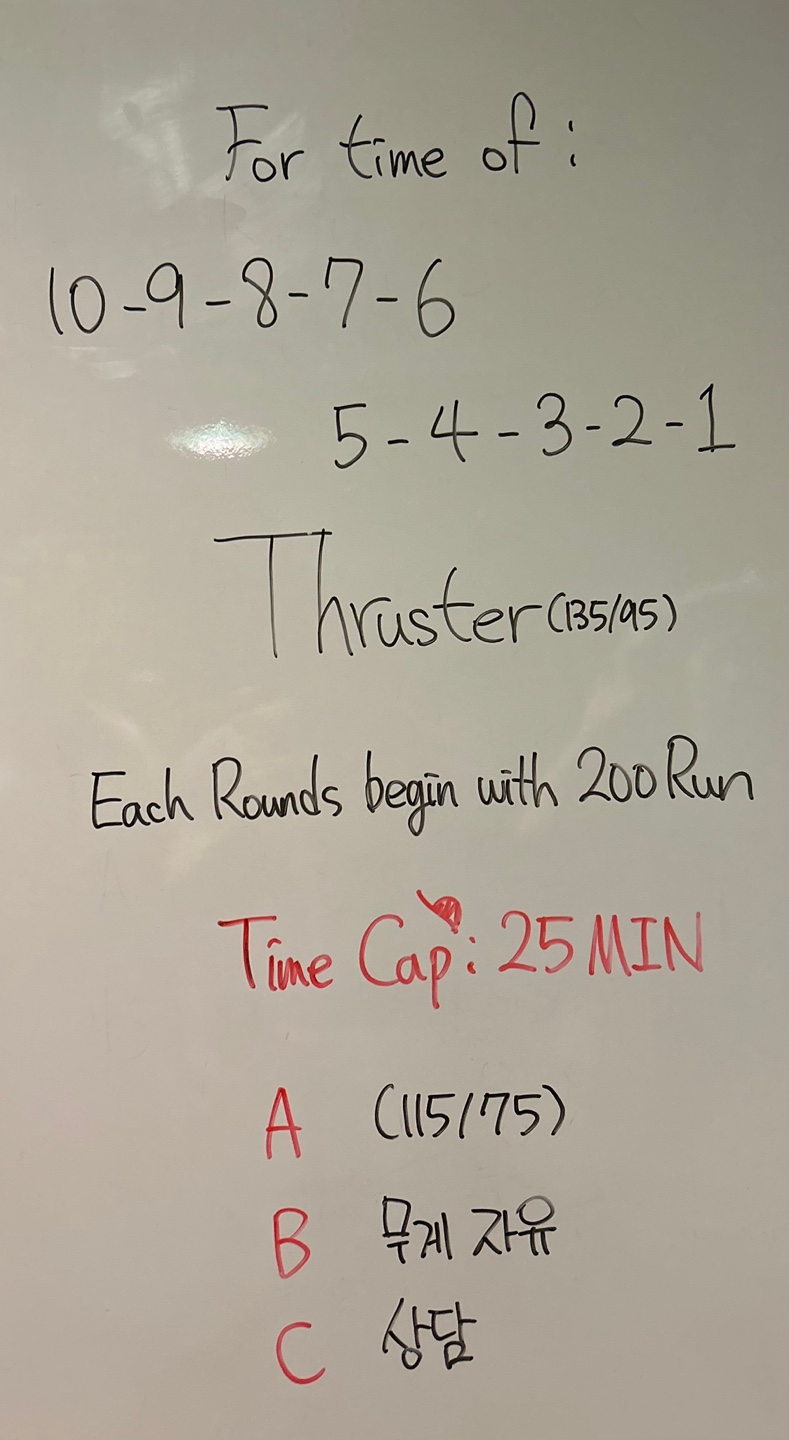 For time of :
10-9-8-7-6
5-4-3-2-1
Thruster (135/95)
Each Rounds begin with 200 Run
Time Cap : 25 MIN
A (115/75)
B 무게 자유
C 상담